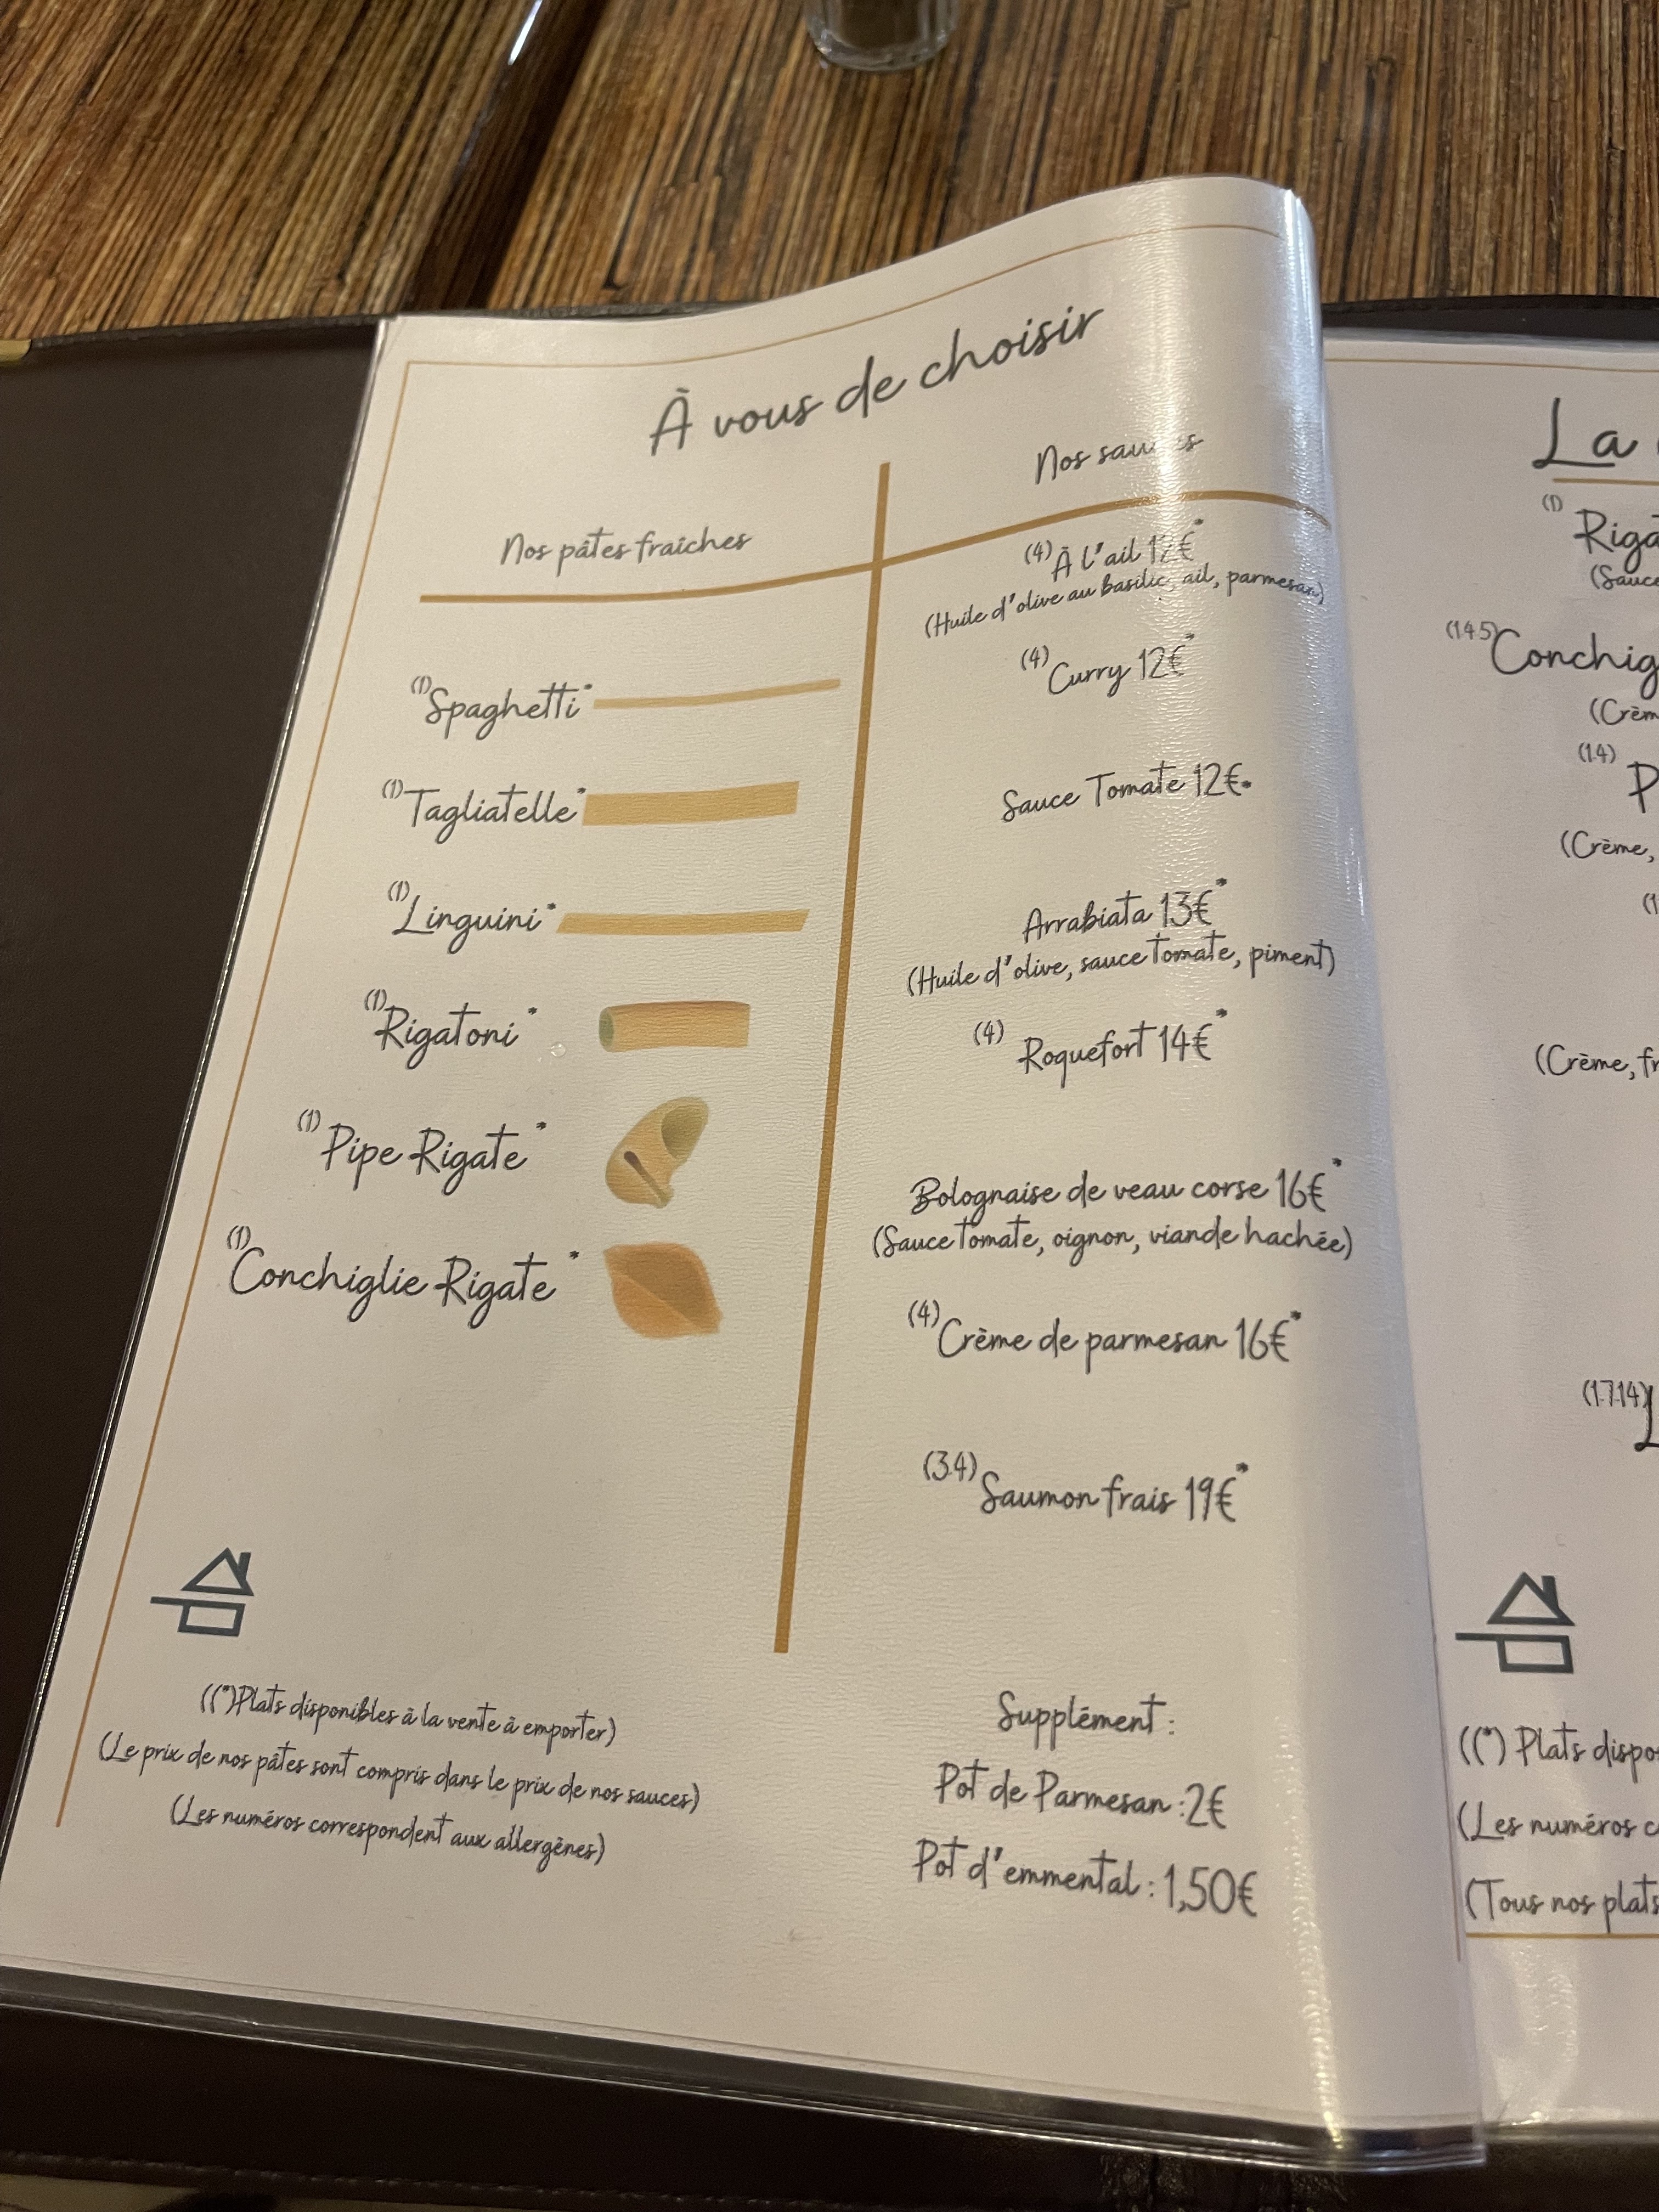 À vous de choisir
Nos pâtes fraîches
(1) Spaghetti*
(1) Tagliatelle*
(1) Linguini*
(1) Rigatoni*
(1) Pipe Rigate*
(1) Conchiglie Rigate*
Nos sauces
(4) À l'ail 12€*
(Huile d'olive au basilic, ail, parmesan)
(4) Curry 12€*
Sauce Tomate 12€*
Arrabiata 13€*
(Huile d'olive, sauce tomate, piment)
(4) Roquefort 14€*
Bolognaise de veau corse 16€*
(Sauce tomate, oignon, viande hachée)
(4) Crème de parmesan 16€*
(3.4) Saumon frais 19€*
((*)Plats disponibles à la vente à emporter)
(Le prix de nos pâtes sont compris dans le prix de nos sauces)
(Les numéros correspondent aux allergènes)
Supplément :
Pot de Parmesan : 2€
Pot d'emmental : 1,50€
La
(1)
(Sauce
(1.4.5)
(1.4)
(Crème,
(Crème,
(1.7.14)
((*) Plats
(Les numéros
(Tous nos plats